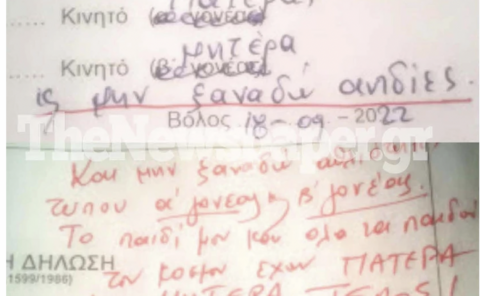 πατέρας
Κινητό (β' γονέας)
μητέρα
Κινητό (β' γονέας)
μην ξαναδώ αηδίες.
Βόλος, 18-09-2022
TheNewspaper.gr
Και μην ξαναδώ
τύπου α' γονέας, β' γονέας.
Το παιδί μου και όλα τα παιδιά
Η ΔΗΛΩΣΗ
του κόσμου έχουν ΠΑΤΕΡΑ
1599/1986)
ΜΗΤΕΡΑ ΤΕΛΟΣ!